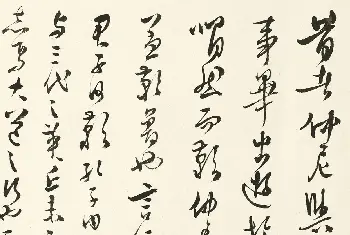 昔者仲尼與
事畢出遊於
喟然而歎仲尼
蓋歎魯也言
君子何歎孔子曰
与三代之英丘未之
志焉大道之行也